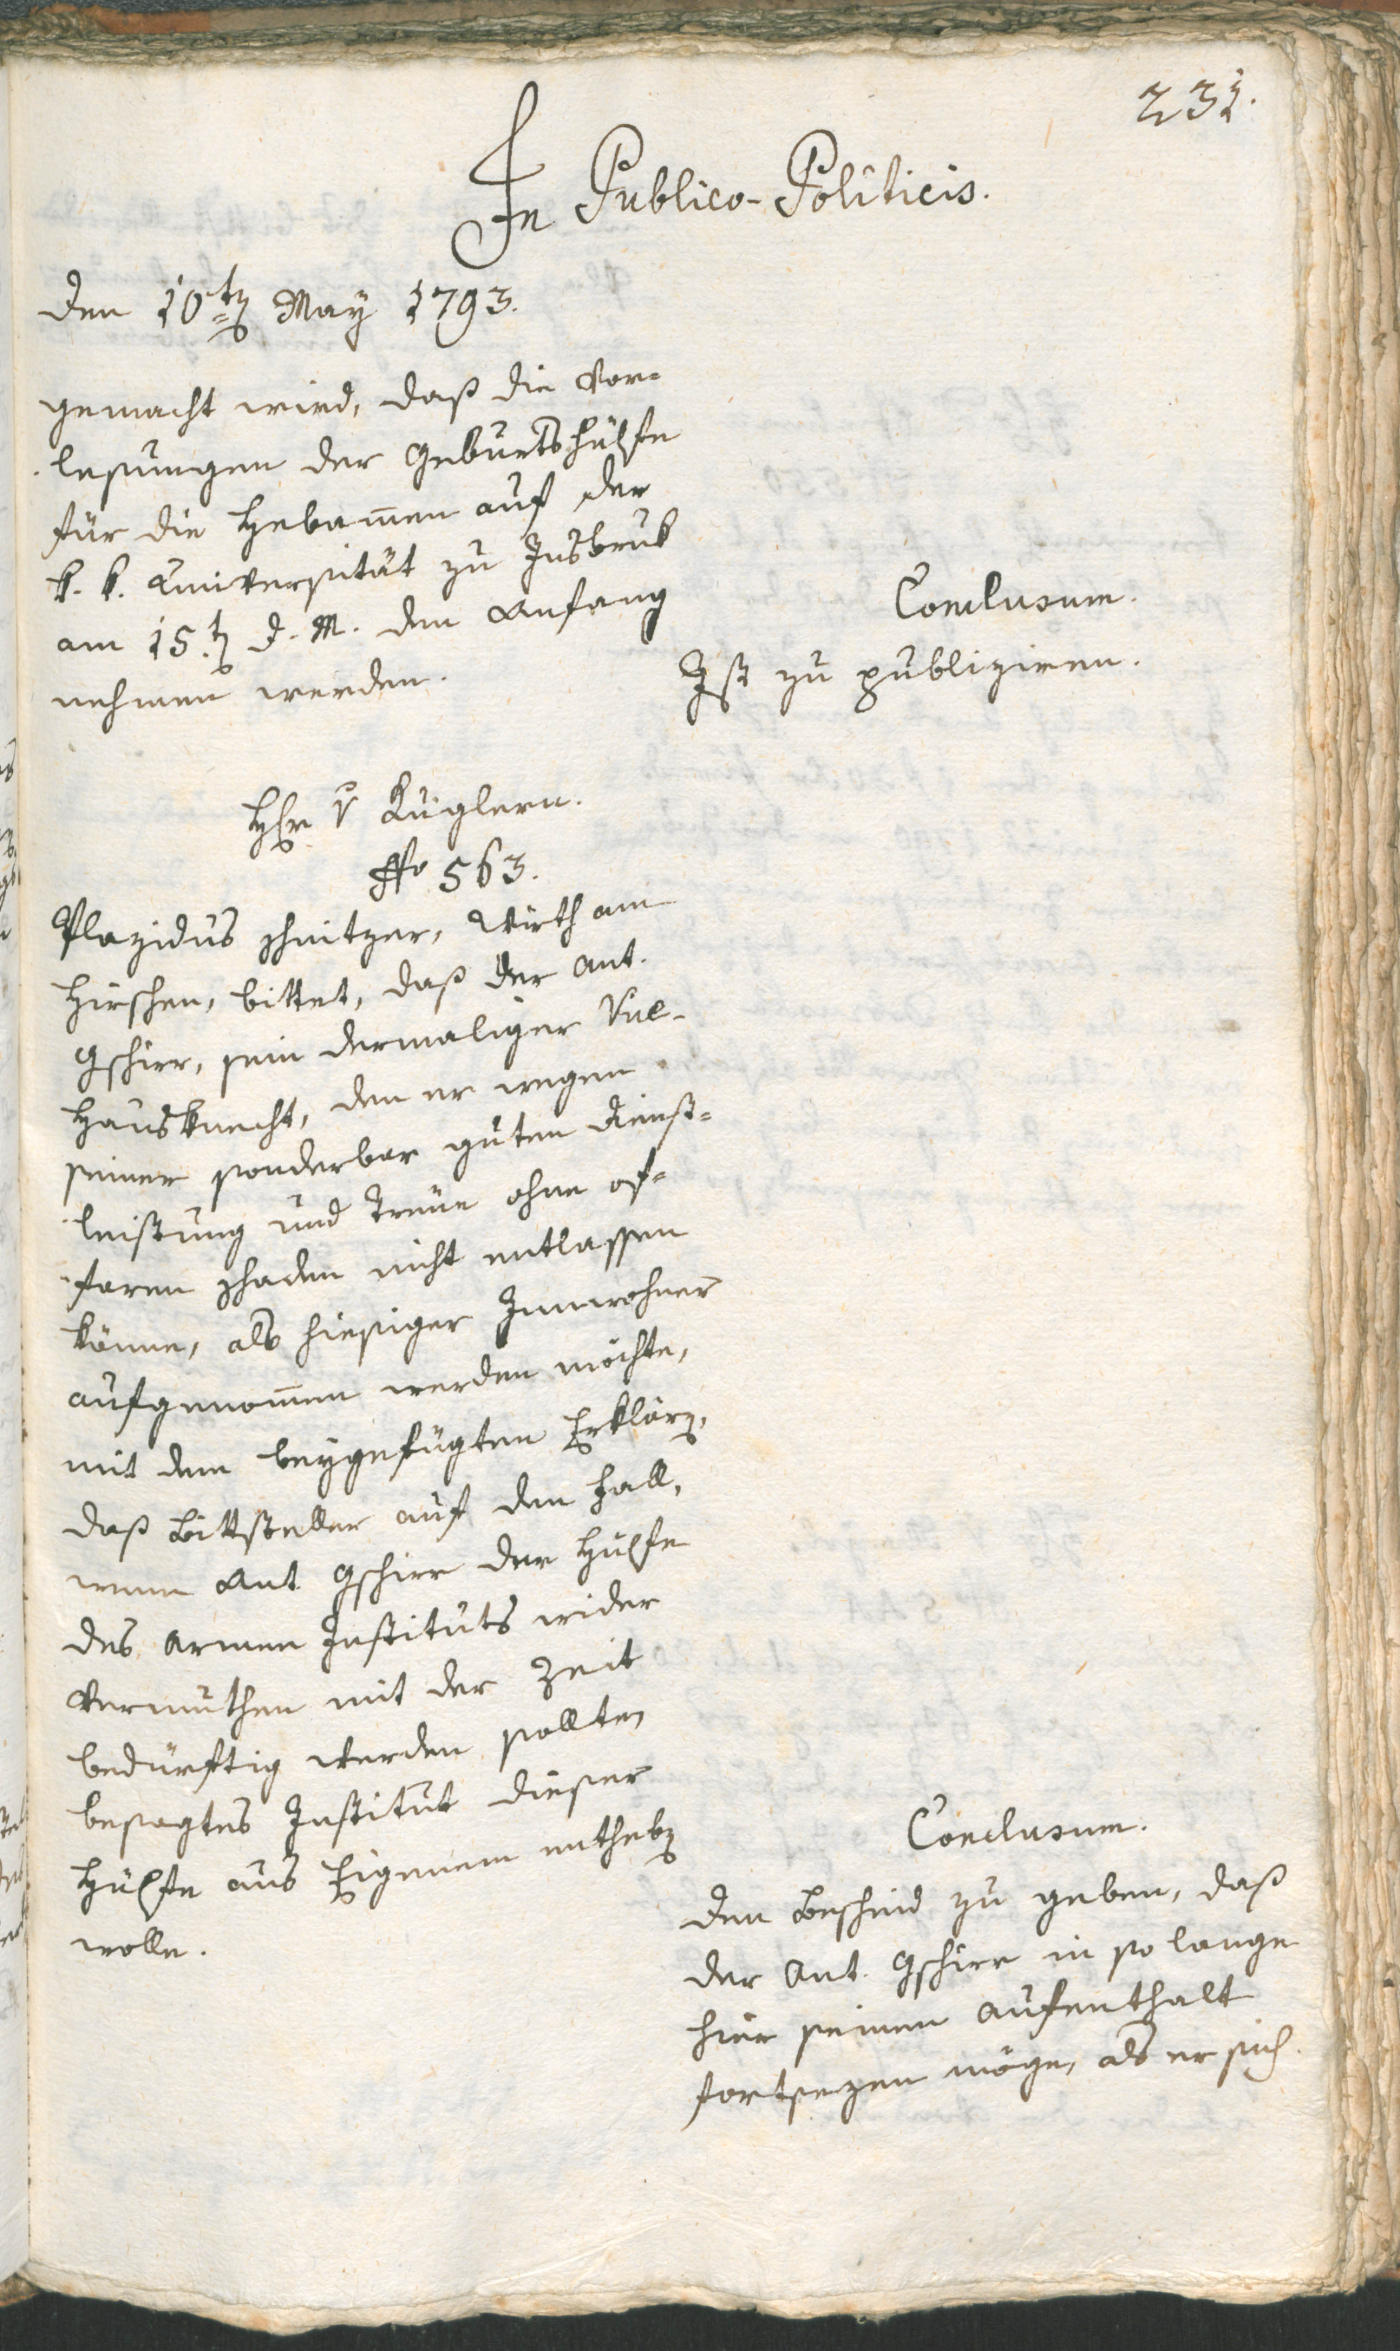 231.
In Publico-Politicis.
den 10ten May 1793.
gemacht wird, daß die Vor-
lesungen der Geburtshülfe
für die Hebam̅en auf der
k. k. Universität zu Insbruk
am 15ten d. M. den Anfang
nehmen werden.
Conclusum.
Ist zu publiziren.
Hhr v Kuglern.
No 563.
Plazidus Schnitzer, Wirth am
Hirschen, bittet, daß der Ant.
Gschirr, sein dermaliger
Hausknecht, den er wegen
seiner sonderbar guten Dienst-
leistung und Treue ohne
Schaden nicht entlassen
könne, als hiesiger Innwohner
aufgenom̅en werden möchte,
mit dem beygefügten Erklären,
daß Bittsteller auf den Fall,
wenn Ant. Gschirr der Hülfe
des Armen Instituts wider
Vermuthen mit der Zeit
bedürftig werden sollte,
besagtes Institut dieser
Hülfe aus Eigenem entheben
wolle.
Conclusum.
Den Bescheid zu geben, daß
der Ant. Gschirr in so lange
hier seinen Aufenthalt
fortsezen möge, als er sich